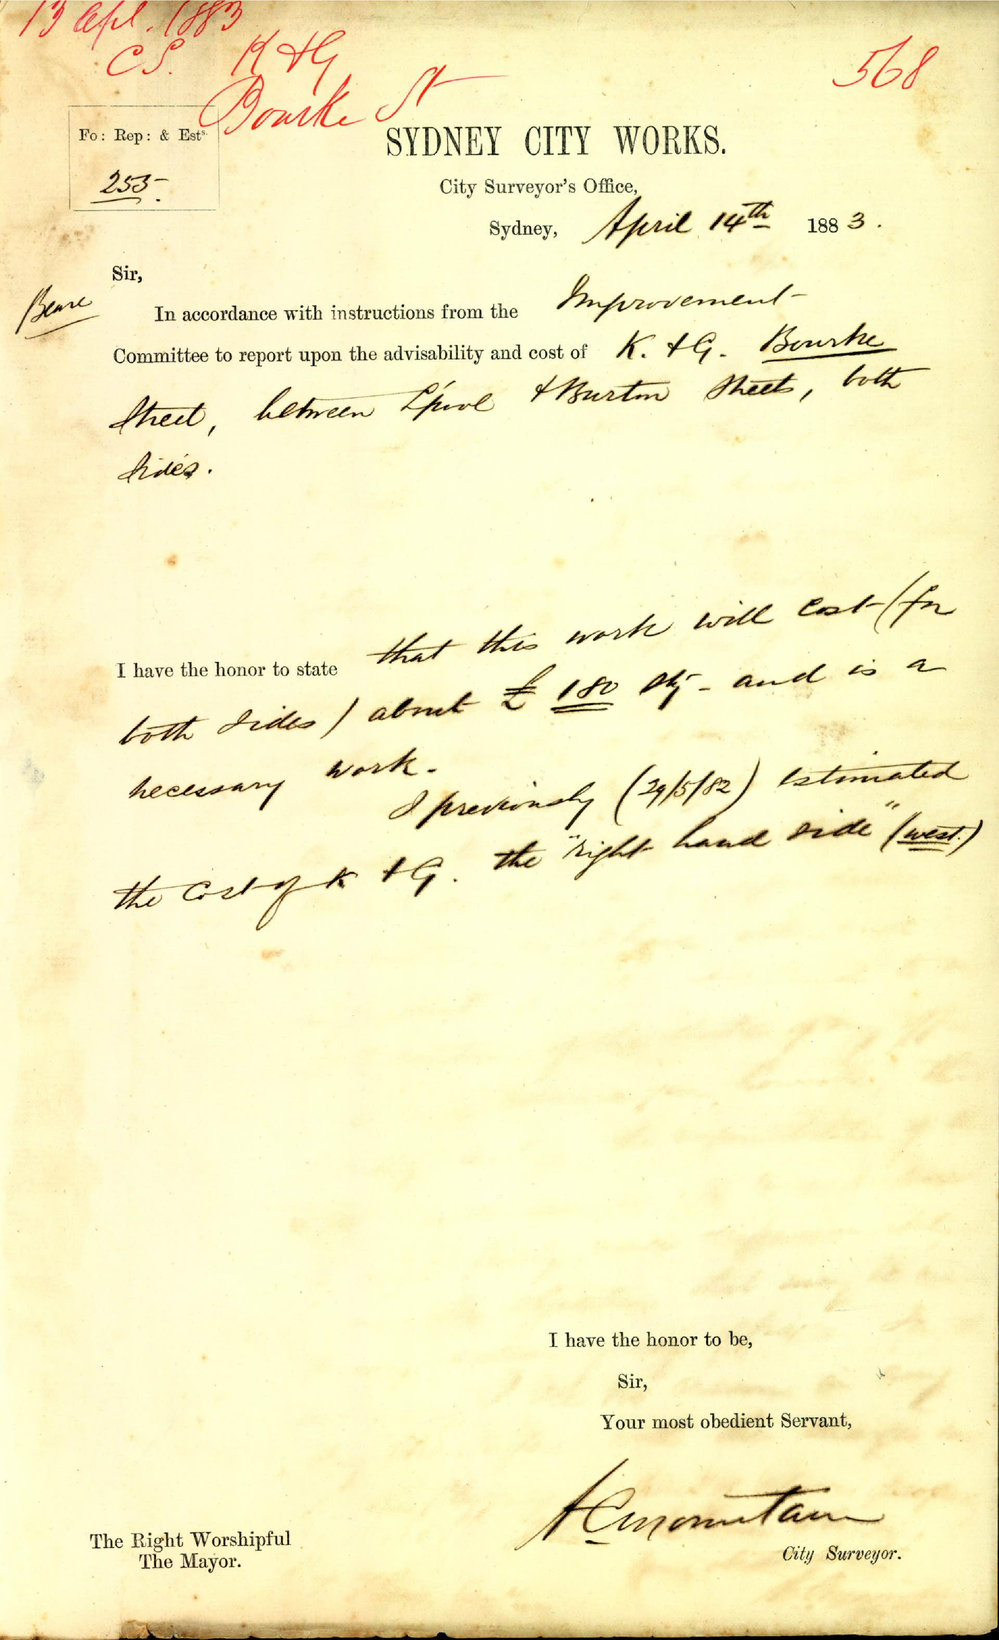 13 Apl. 1883
C S. K & G
Bourke St
568
Fo: Rep: & Ests.
255.
SYDNEY CITY WORKS.
City Surveyor's Office,
Sydney, April 14th 1883.
Sir,
In accordance with instructions from the Improvement
Committee to report upon the advisability and cost of K. & G. Bourke
Street, between L'pool & Burton Streets, both
Sides.
I have the honor to state that this work will cost (for
both sides) about £180 stg - and is a
necessary work.
I previously (29/5/82) estimated
the Cost of K & G. the "right hand side" (west.)
I have the honor to be,
Sir,
Your most obedient Servant,
A C Mountain
City Surveyor.
The Right Worshipful
The Mayor.